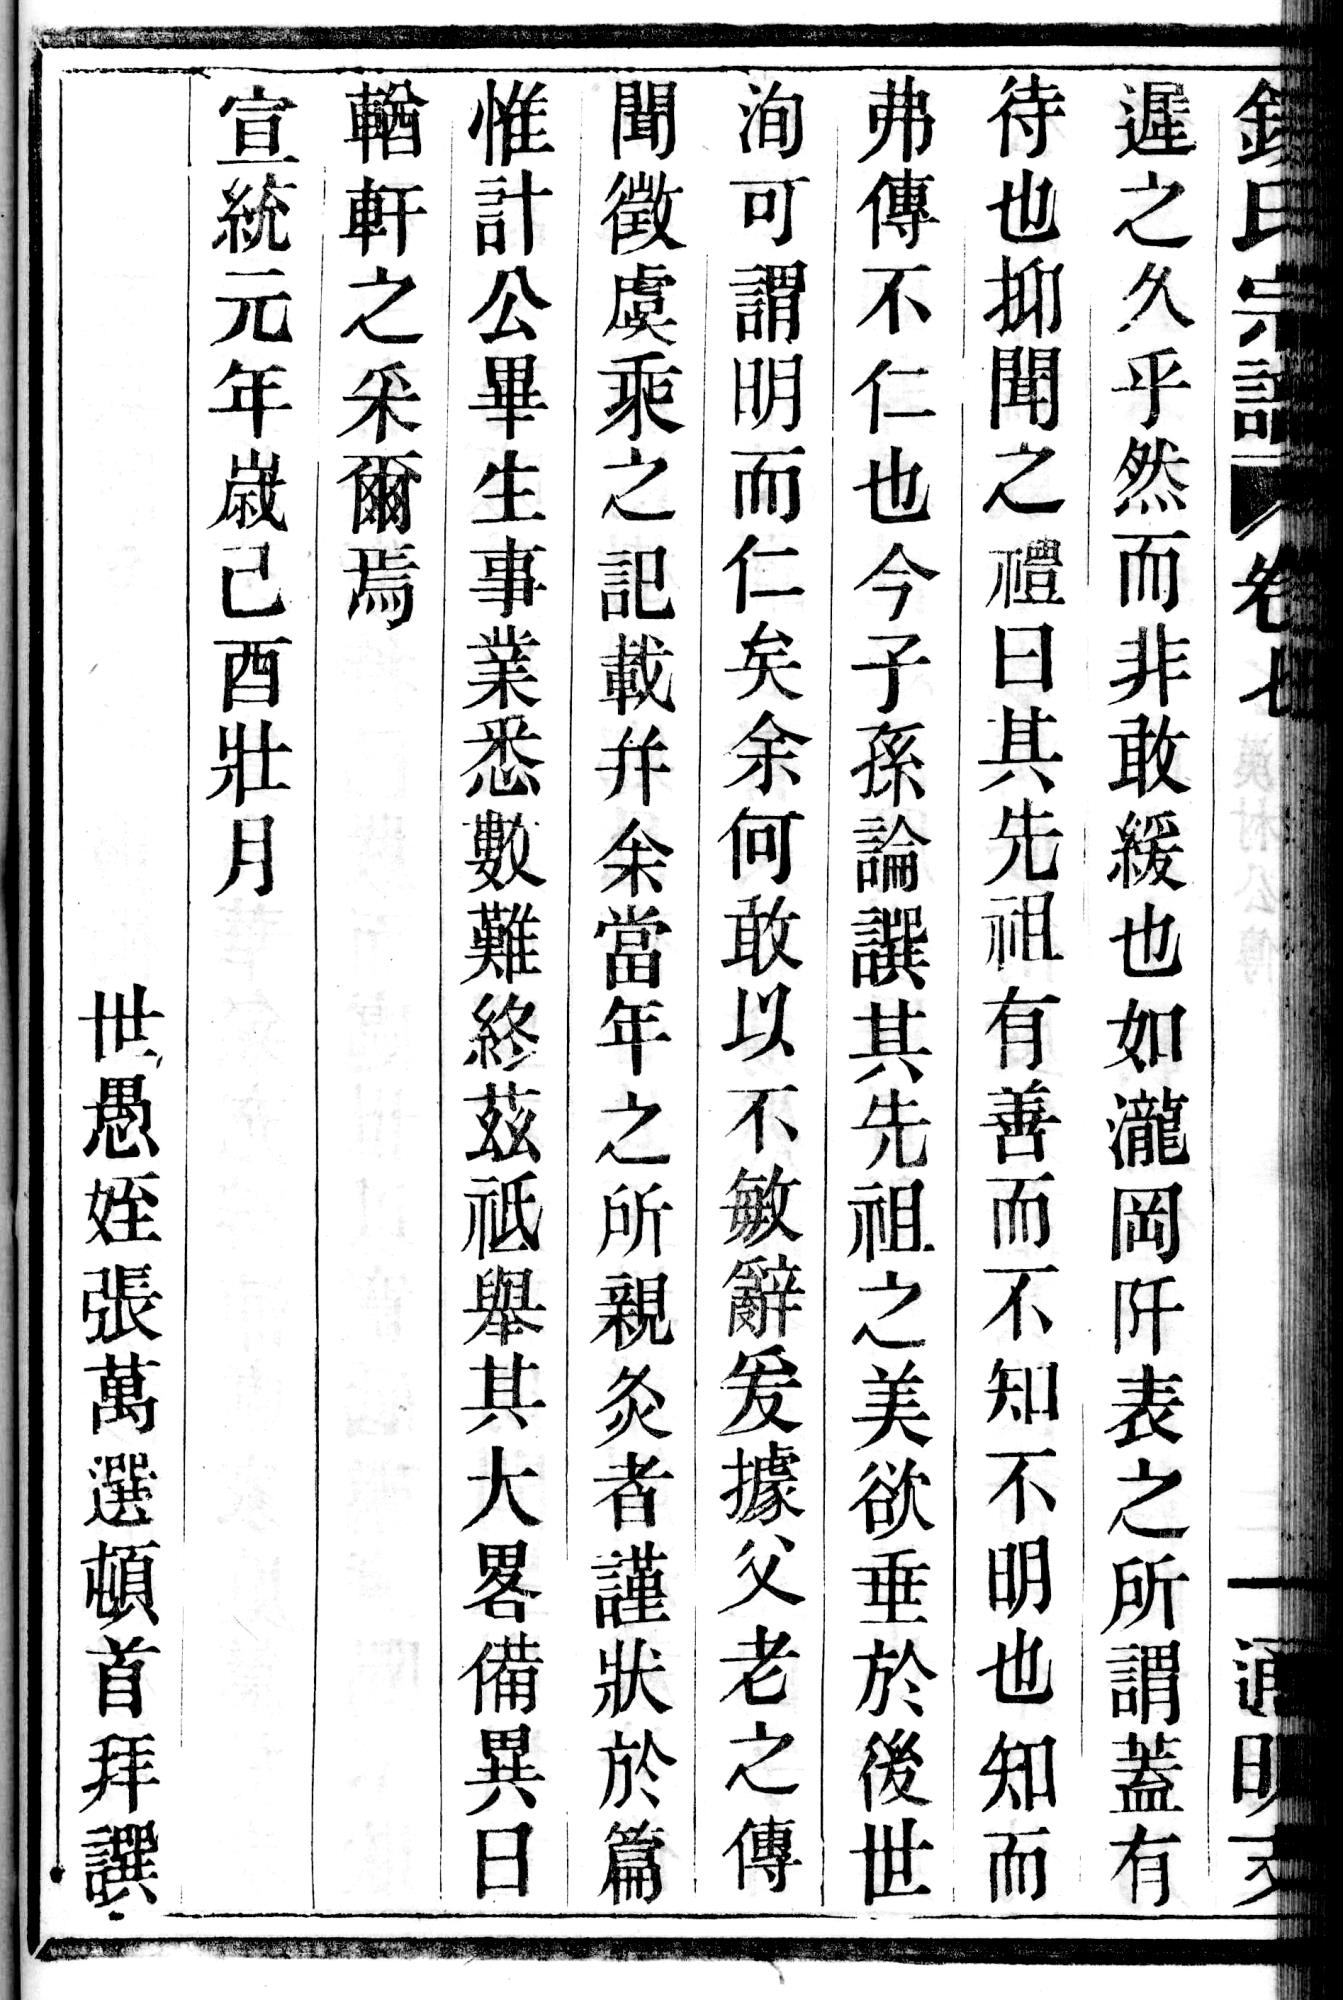 氏宗譜 卷七 一 通明
遲之久乎然而非敢緩也如瀧岡阡表之所謂蓋有
待也抑聞之禮曰其先祖有善而不知不明也知而
弗傳不仁也今子孫論譔其先祖之美欲垂於後世
洵可謂明而仁矣余何敢以不敏辭爰據父老之傳
聞徵虞乘之記載并余當年之所親炙者謹狀於篇
惟計公畢生事業悉數難終茲祗舉其大畧備異日
輶軒之采爾焉
宣統元年歲己酉壯月
世愚姪張萬選頓首拜譔